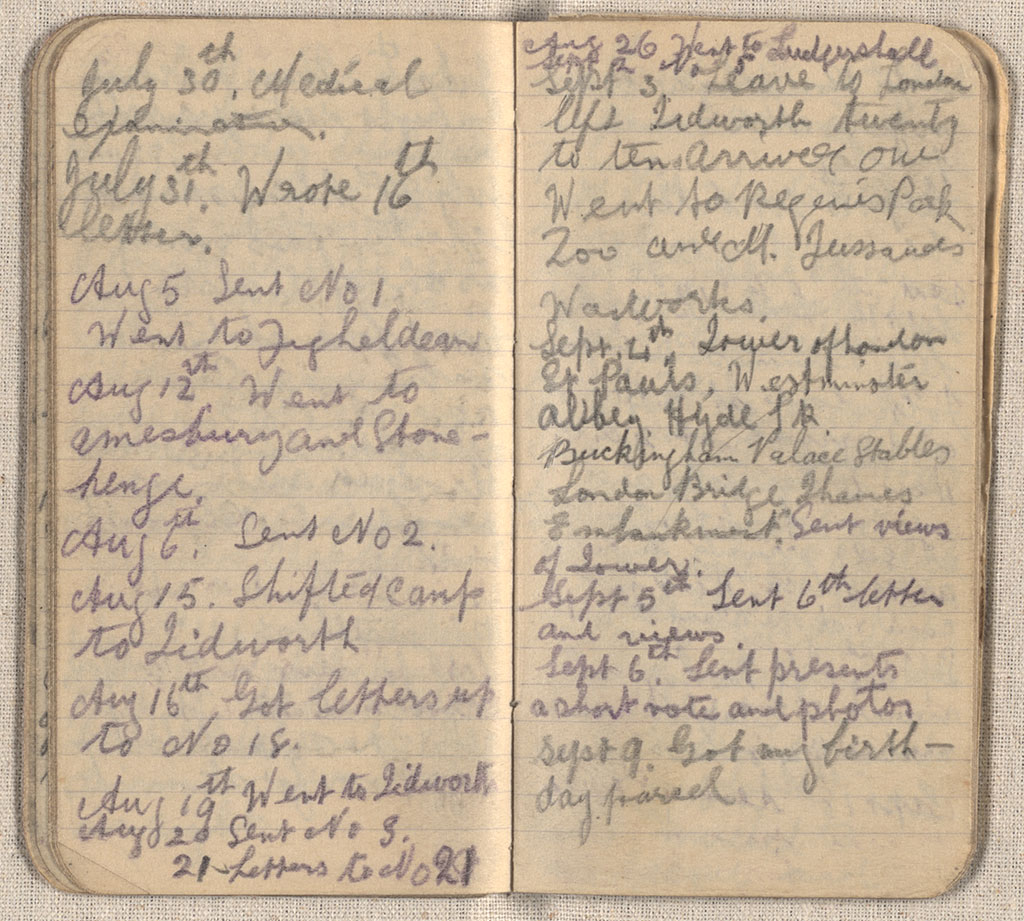 July 30th. Medical
Examination.
July 31st. Wrote 16th
letter.
Aug 5 Sent No 1.
Went to Figheldean
Aug 12th Went to
Amesbury and Stone-
henge.
Aug 6th. Sent No 2.
Aug 15. Shifted Camp
to Tidworth
Aug 16th Got letters up
to No 18.
Aug 19th Went to Tidworth
Aug 20 Sent No 3.
21 Letters to No 21
Aug 26 Went to Ludgershall
Sept 2 No 5
Sept 3. Leave to London
left Tidworth twenty
to ten. Arrived one
Went to Regents Park
Zoo and M. Tussauds
Waxworks.
Sept. 4th. Tower of London
St Pauls, Westminster
Abbey, Hyde Pk.
Buckingham Palace Stables
London Bridge Thames
Embankment. Sent views
of Tower.
Sept 5th Sent 6th letter
and views.
Sept 6th. Sent presents
a short note and photos
Sept 9. Got my birth-
day parcel